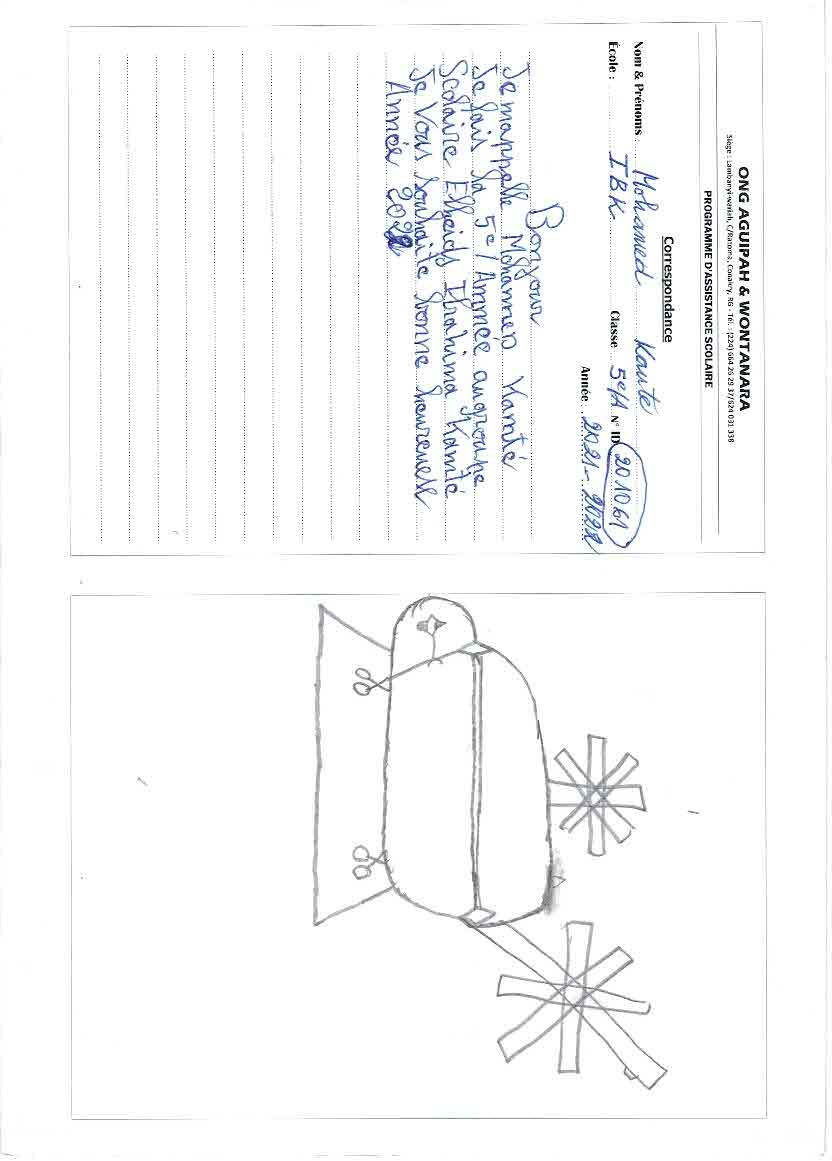 ONG AGUIPAH & WONTANARA
Siège : Lambanyi-waniah, C/Ratoma, Conakry, RG - Tél. : (224) 664 26 29 37/624 031 338
PROGRAMME D'ASSISTANCE SCOLAIRE
Correspondance
Nom & Prénoms : Mohamed Kanté
École : IBK Classe 5e/A N° ID 201061
Année : 2021-2022
Bonjour
Je mappelle Mohamed Kanté
Je fais la 5e/Année augroupe
Scolaire Elheidj Ibrahima Kanté
Je Vous souhaite bonne heureuse
Année 2022